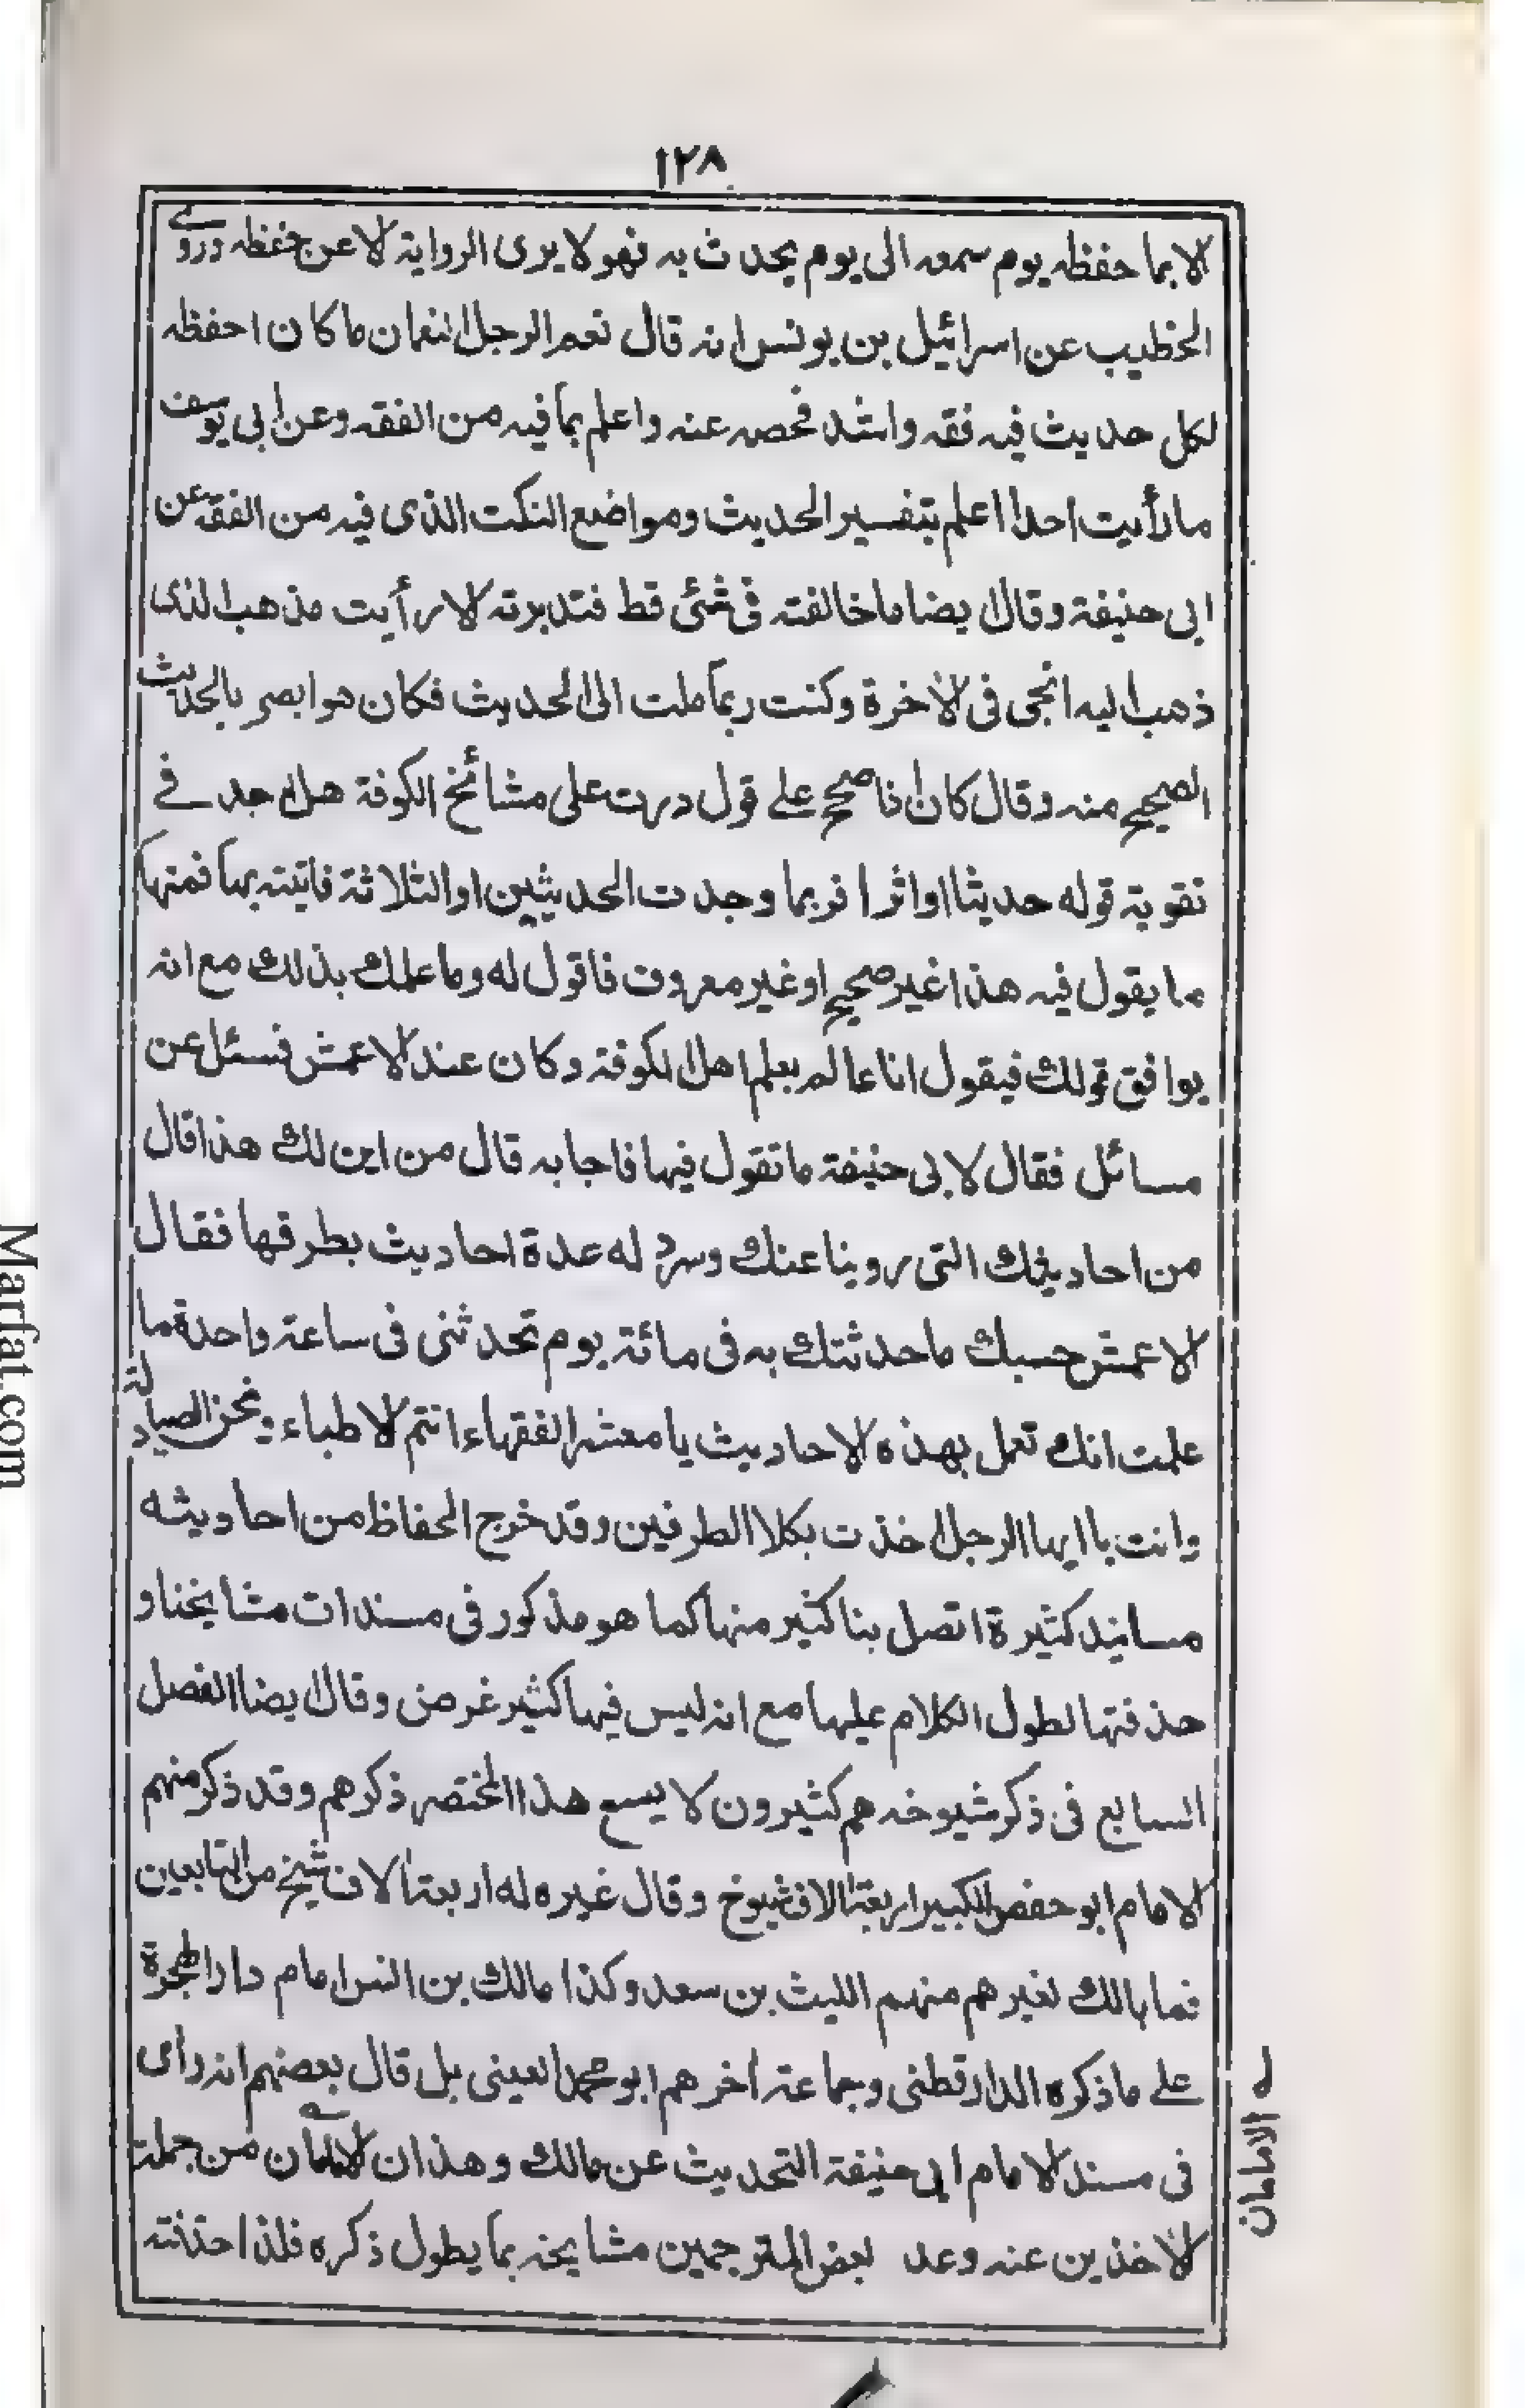 ١٢٨
الا بما حفظه يوم سمعه الى يوم يحدث به فهو لا يرى الرواية الا عن حفظه وروى
الخطيب عن اسرائيل بن يونس انه قال نعم الرجل النعمان ما كان احفظه
لكل حديث فيه فقه واشد فحصه عنه واعلم بما فيه من الفقه وعن ابي يوسف
ما رأيت احدا اعلم بتفسير الحديث ومواضع النكت الذى فيه من الفقه عن
ابى حنيفة وقال ايضا ما خالفته فى شئى قط فتدبرته الا رأيت مذهب الذى
ذهب اليه انجى فى الآخرة وكنت ربما ملت الى الحديث فكان هو ابصر بالحديث
الصحيح منه وقال كان اذا صحح على قول درت على مشائخ الكوفة هل اجد فى
تقوية قوله حديثا او اثرا فربما وجدت الحديثين او الثلاثة فاتيته بها فمنها
ما يقول فيه هذا غير صحيح او غير معروف فاقول له وما علمك بذلك مع انه
يوافق قولك فيقول انا عالم بعلم اهل الكوفة وكان عند الاعمش فسئل عن
مسائل فقال لابى حنيفة ما تقول فيها فاجابه قال من اين لك هذا قال
من احاديثك التى روينا عنك وسرد له عدة احاديث بطرقها فقال
الاعمش حسبك ما حدثتك به فى مائة يوم تحدثنى فى ساعة واحدة ما
علمت انك تعمل بهذه الاحاديث يا معشر الفقهاء انتم الاطباء ونحن الصيادلة
وانت يا ايها الرجل اخذت بكلا الطرفين وقد خرج الحفاظ من احاديثه
مسانيد كثيرة اتصل بنا كثير منها كما هو مذكور فى مسندات مشايخنا و
حذفتها لطول الكلام عليها مع انه ليس فيها كثير غرض وقال ايضا الفصل
السابع فى ذكر شيوخه هم كثيرون لا يسع هذا المختصر ذكرهم وقد ذكر منهم
الامام ابو حفص الكبير اربعة الاف شيوخ وقال غيره له اربعة آلاف شيخ من التابعين
فما بالك لغيرهم منهم الليث بن سعد وكذا مالك بن انس امام دار الهجرة
على ما ذكره الدارقطنى وجماعة اخرهم ابو محمد العينى بل قال بعضهم انه رأى
فى مسند الامام ابى حنيفة التحديث عن مالك وهذان الامامان من جملة
الآخذين عنه وعد بعض المترجمين مشايخه بما يطول ذكره فلذا حذفته
له الامامان
Marfat.com